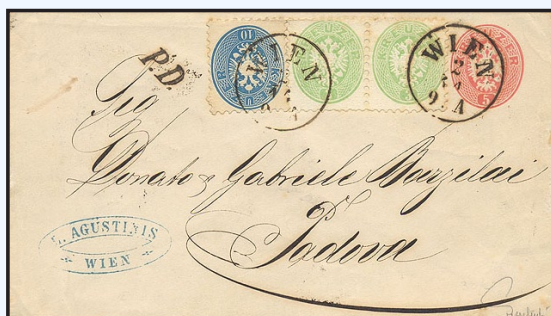 P.D.
WIEN
WIEN
10
5
Donato & Gabriele Barzilai
Padova
AGUSTINIS
WIEN